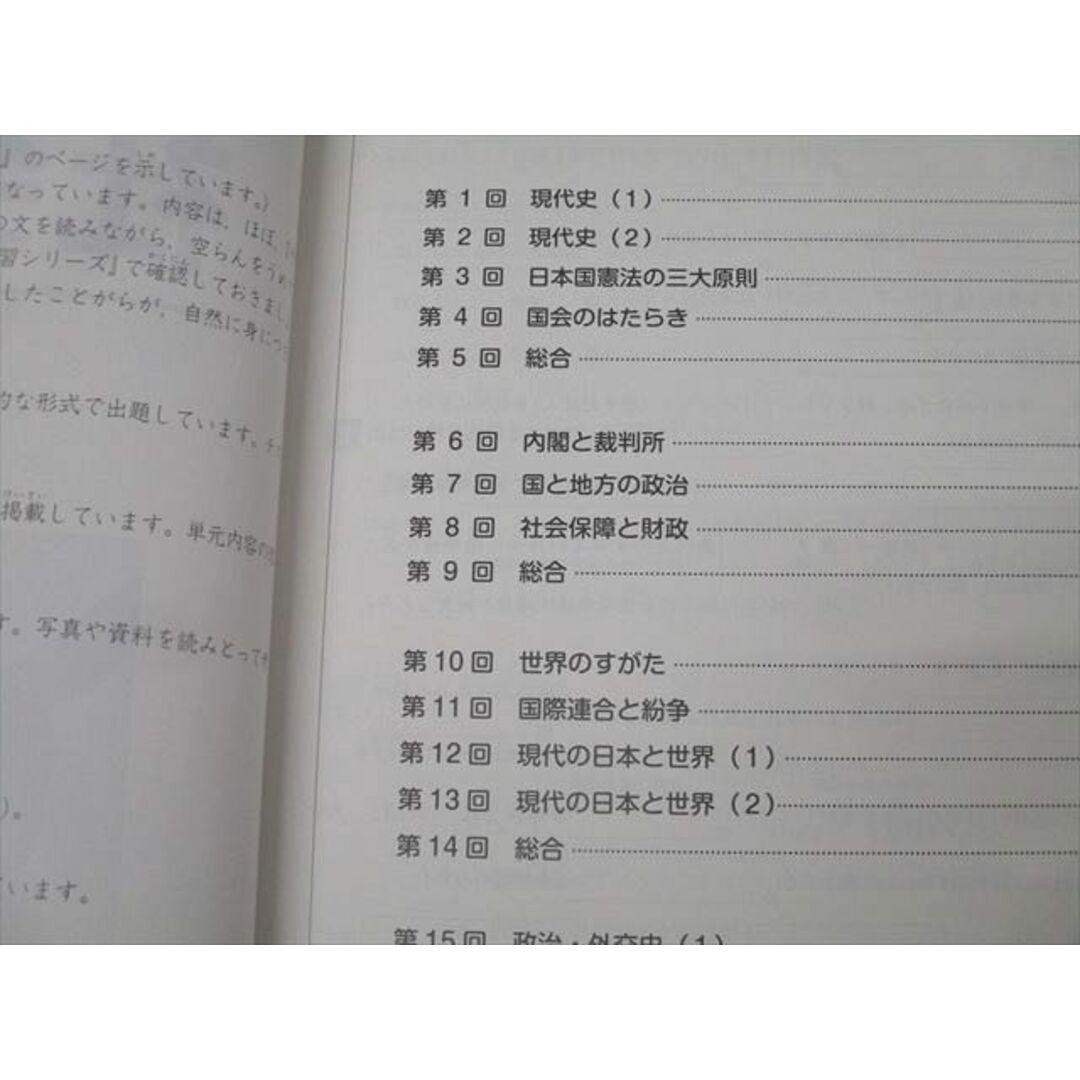 』のページを示しています。)
なっています。内容は、ほぼ、
の文を読みながら、空らんをうめ
習シリーズ』で確認しておきまし
したことがらが、自然に身につ
的な形式で出題しています。チ
けいさい
掲載しています。単元内容の
す。写真や資料を読みとって
)。
ています。
第 1 回 現代史(1)
第 2 回 現代史(2)
第 3 回 日本国憲法の三大原則
第 4 回 国会のはたらき
第 5 回 総合
第 6 回 内閣と裁判所
第 7 回 国と地方の政治
第 8 回 社会保障と財政
第 9 回 総合
第10回 世界のすがた
第11回 国際連合と紛争
第12回 現代の日本と世界(1)
第13回 現代の日本と世界(2)
第14回 総合
第15回 政治・外交史(1)